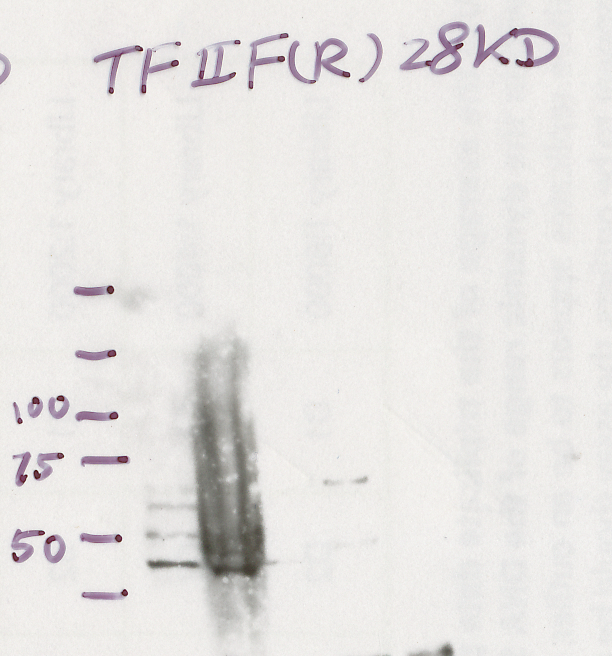 TFIIF(R) 28KD
100
75
50